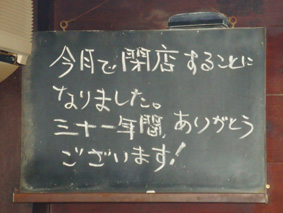 今月で閉店することに
なりました。
三十一年間、ありがとう
ございます!